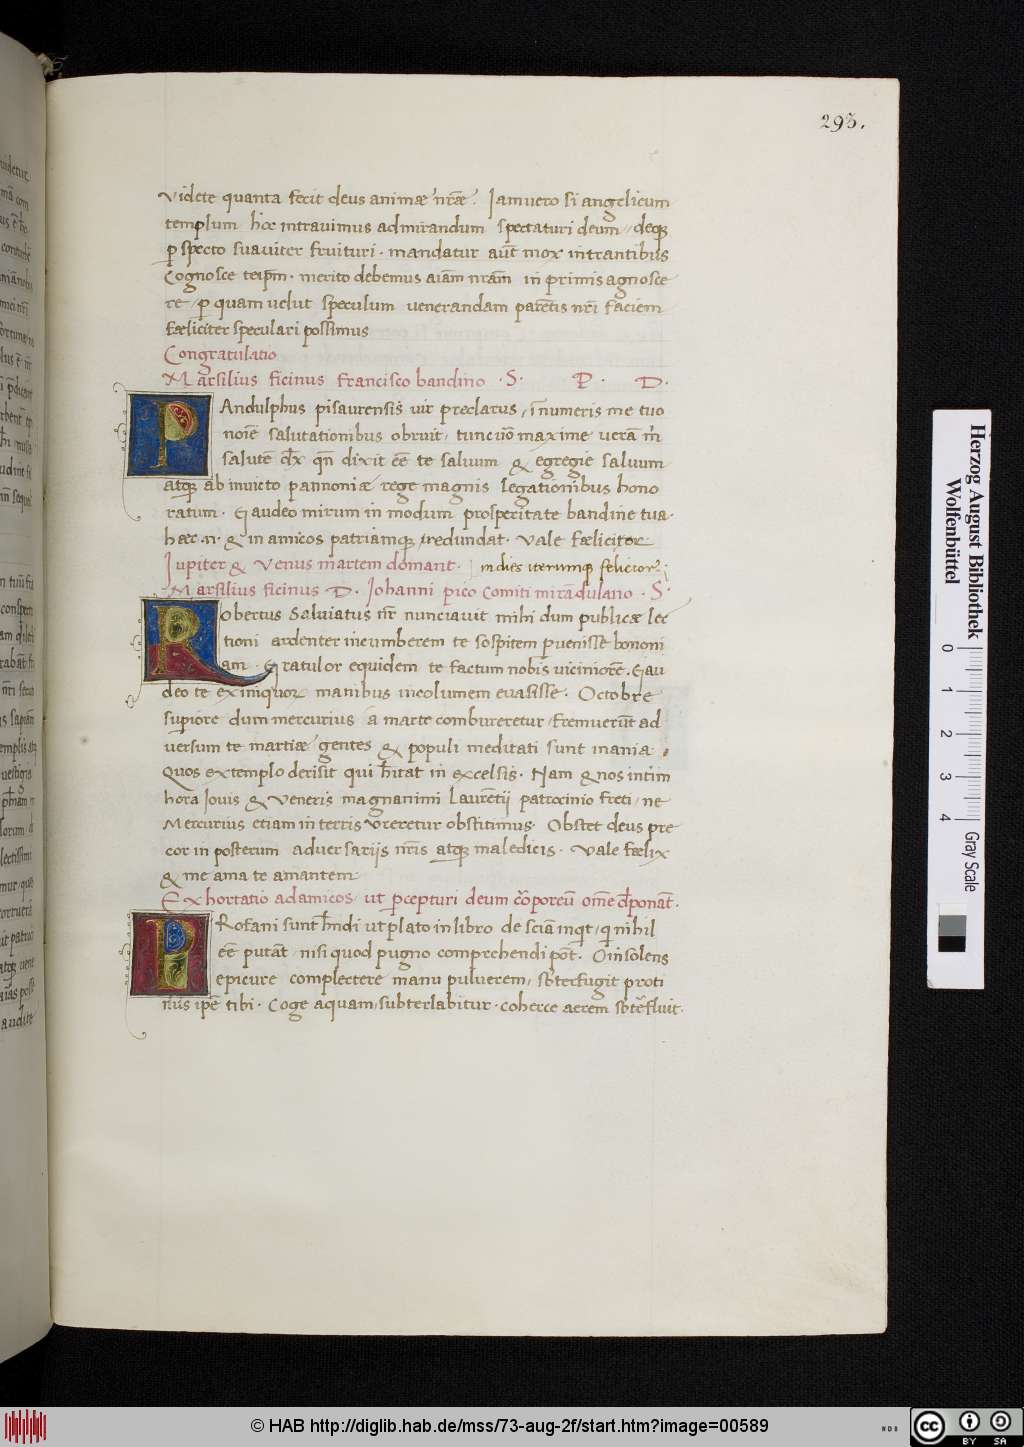 293.
Videte quanta fecit deus animæ nr̃æ. Iamuero si angelicum
templum hoc intrauimus admirandum spectaturi deum, deoq;
ꝑspecto suauiter fruituri. mandatur aut̃ mox intrantibus
Cognosce teip̃m. merito debemus aiãm nrãm in primis agnosce
re, ꝑ quam uelut speculum uenerandam parẽtis nr̃i faciem
fæliciter speculari possimus
Congratulatio
Marsilius ficinus Francisco bandino . S. P. D.
PAndulphus pisaurensis uir preclarus, ĩnumeris me tuo
noĩe salutationibus obruit, tunc uõ maxime ueram
salutẽ dix̃ qñ dixit eẽ te saluum & egregie saluum
atq; ab inuicto pannoniæ rege magnis legationibus hono
ratum. Gaudeo mirum in modum prosperitate bandine tua.
hæc .n. & in amicos patriamq; redundat. Vale fæliciter
Iupiter & Venus martem domant. in dies iterumq; felicior.
Marsilius ficinus D. Iohanni pico Comiti mirãdulano . S.
RObertus Saluiatus nr̃ nunciauit mihi dum publicæ lec
tioni ardenter incumberem te sospitem ꝑuenisse bononi
am. Gratulor equidem te factum nobis uiciniorẽ. Gau
deo te ex iniquor manibus incolumem euasisse. Octobre
suꝑiore dum mercurius a marte combureretur, fremuerũt ad
uersum te martiæ gentes & populi meditati sunt inania.
Quos extemplo derisit qui h̃itat in excelsis. Nam & nos inteĩm
hora Iouis & Veneris magnanimi Laurẽtii patrocinio freti, ne
Mercurius etiam in terris ureretur obstitimus. Obstet deus pre
cor in posterum aduersariis nr̃is atq; maledicis. Vale fælix
& me ama te amantem
Exhortatio ad amicos ut ꝑcepturi deum cõrporeũ om̃e dꝑonãt.
PRofani sunt hñdi ut plato in libro de sciã inqt, qi nihil
eẽ putãt, nisi quod pugno comprehendi põt. O insolens
epicure complectere manu puluerem, sb̃terfugit proti
nus ip̃e tibi. Coge aquam, subterlabitur. coherce aerem sb̃tẽrfluit.
Herzog August Bibliothek
Wolfenbüttel
0 1 2 3 4
Gray Scale
© HAB http://diglib.hab.de/mss/73-aug-2f/start.htm?image=00589
WDB
cc BY SA